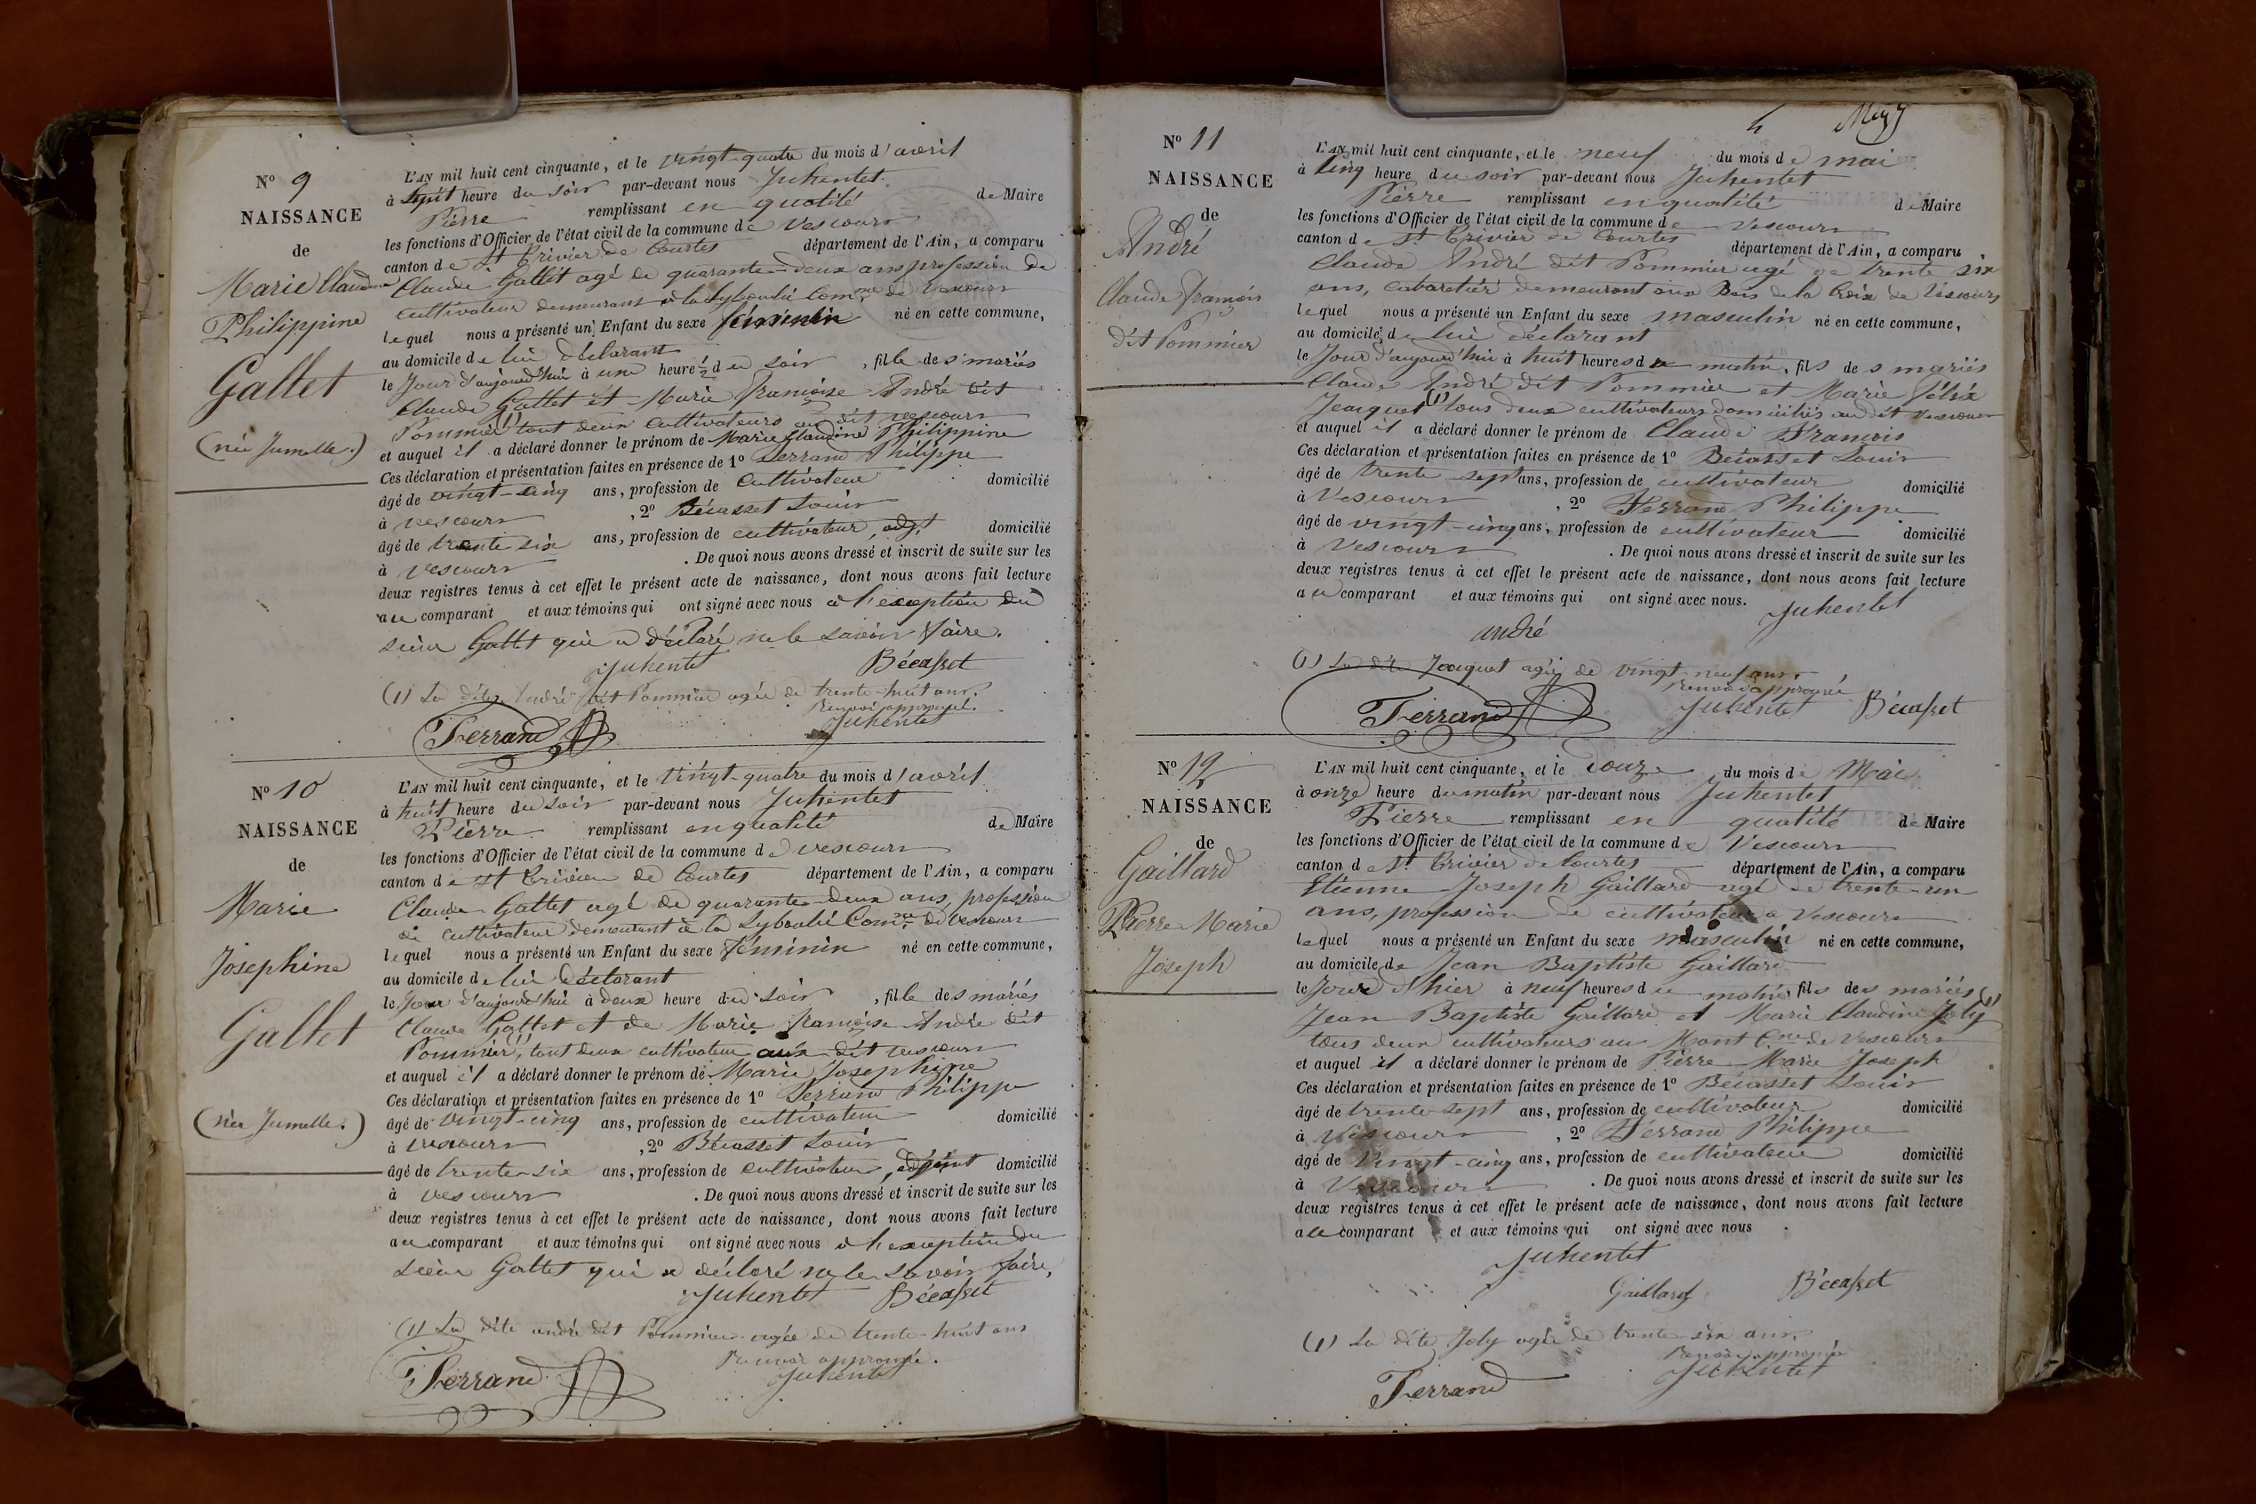 N° 9
NAISSANCE
de
Marie Claudine
Philippine
Gallet
(née Jumelle.)
L'AN mil huit cent cinquante, et le vingt-quatre du mois d'avril
à sept heure du soir par-devant nous Juhentet
Pierre remplissant en qualité de Maire
les fonctions d'Officier de l'état civil de la commune de Vescours
canton de St Trivier de Courtes département de l'Ain, a comparu
Claude Gallet agé de quarante-deux ans profession de
cultivateur demeurant à la Com.ne de Vescours
lequel nous a présenté un Enfant du sexe féminin né en cette commune,
au domicile de lui déclarant
le Jour d'aujourd'hui à une heure ½ du soir, fille des mariés
Claude Gallet et Marie Françoise André dit
Pommier (1) tout deux cultivateurs au dit vescours
et auquel il a déclaré donner le prénom de Marie Claudine Philippine
Ces déclaration et présentation faites en présence de 1° Ferrand Philippe
âgé de vingt-cinq ans, profession de cultivateur domicilié
à vescours, 2° Bécasset Louis
âgé de trente six ans, profession de cultivateur, adjt domicilié
à vescours. De quoi nous avons dressé et inscrit de suite sur les
deux registres tenus à cet effet le présent acte de naissance, dont nous avons fait lecture
au comparant et aux témoins qui ont signé avec nous à l'exception du
sieur Gallet qui a déclaré ne le savoir faire.
Juhentet Bécasset
(1) La dite André dit Pommier agée de trente-huit ans.
Renvoi approuvé.
Ferrand Juhentet
N° 10
NAISSANCE
de
Marie
Josephine
Gallet
(née Jumelle.)
L'AN mil huit cent cinquante, et le vingt-quatre du mois d'avril
à huit heure du soir par-devant nous Juhentet
Pierre remplissant en qualité de Maire
les fonctions d'Officier de l'état civil de la commune de vescours
canton de St Trivier de Courtes département de l'Ain, a comparu
Claude Gallet agé de quarante-deux ans, profession
de cultivateur demeurant à la Com.ne de Vescours
lequel nous a présenté un Enfant du sexe féminin né en cette commune,
au domicile de lui déclarant
le Jour d'aujourd'hui à deux heure du soir, fille des mariés
Claude Gallet et de Marie françoise André dit
Pommier (1), tout deux cultivateur au dit vescours
et auquel il a déclaré donner le prénom de Marie Josephine
Ces déclaration et présentation faites en présence de 1° Ferrand Philippe
âgé de vingt-cinq ans, profession de cultivateur domicilié
à vescours, 2° Bécasset Louis
âgé de trente-six ans, profession de cultivateur, adjoint domicilié
à vescours. De quoi nous avons dressé et inscrit de suite sur les
deux registres tenus à cet effet le présent acte de naissance, dont nous avons fait lecture
au comparant et aux témoins qui ont signé avec nous à l'exception du
sieur Gallet qui a déclaré ne le savoir faire.
Juhentet Bécasset
(1) La dite andré dit Pommier agée de trente-huit ans
Renvoi approuvé.
Ferrand Juhentet
4
N° 11
NAISSANCE
de
André
Claude François
dit Pommier
L'AN mil huit cent cinquante, et le neuf du mois de mai
à cinq heure du soir par-devant nous Juhentet
Pierre remplissant en qualité de Maire
les fonctions d'Officier de l'état civil de la commune de Vescours
canton de St Trivier de Courtes département de l'Ain, a comparu
Claude André dit Pommier agé de trente six
ans, cabaretier demeurant aux Bois de la Croix de Vescours
lequel nous a présenté un Enfant du sexe masculin né en cette commune,
au domicile de lui déclarant
le Jour d'aujourd'hui à huit heures du matin, fils des mariés
Claude André dit Pommier et Marie
Jacquet (1) tous deux cultivateurs domiciliés au dit Vescours
et auquel il a déclaré donner le prénom de Claude François
Ces déclaration et présentation faites en présence de 1° Bécasset Louis
âgé de trente sept ans, profession de cultivateur domicilié
à Vescours, 2° Ferrand Philippe
âgé de vingt-cinq ans, profession de cultivateur domicilié
à Vescours. De quoi nous avons dressé et inscrit de suite sur les
deux registres tenus à cet effet le présent acte de naissance, dont nous avons fait lecture
au comparant et aux témoins qui ont signé avec nous. Juhentet
andré
(1) La dite Jacquet agée de vingt-neuf ans.
Renvoi approuvé
Ferrand Juhentet Bécasset
N° 12
NAISSANCE
de
Gaillard
Pierre Marie
Joseph
L'AN mil huit cent cinquante, et le douze du mois de Mai
à onze heure du matin par-devant nous Juhentet
Pierre remplissant en qualité de Maire
les fonctions d'Officier de l'état civil de la commune de Vescours
canton de St Trivier de Courtes département de l'Ain, a comparu
Etienne Joseph Gaillard agé de trente-un
ans, profession de cultivateur a Vescours
lequel nous a présenté un Enfant du sexe masculin né en cette commune,
au domicile de Jean Baptiste Gaillard
le Jour d'hier à neuf heures du matin fils des mariés
Jean Baptiste Gaillard et Marie Claudine Joly (1)
tous deux cultivateurs au Mont C.ne de Vescours
et auquel il a déclaré donner le prénom de Pierre Marie Joseph
Ces déclaration et présentation faites en présence de 1° Bécasset Louis
âgé de trente-sept ans, profession de cultivateur domicilié
à Vescours, 2° Ferrand Philippe
âgé de vingt-cinq ans, profession de cultivateur domicilié
à Vescours. De quoi nous avons dressé et inscrit de suite sur les
deux registres tenus à cet effet le présent acte de naissance, dont nous avons fait lecture
au comparant et aux témoins qui ont signé avec nous.
Juhentet
Gaillard Bécasset
(1) La dite Joly agée de trente six ans.
Renvoi approuvé
Ferrand Juhentet